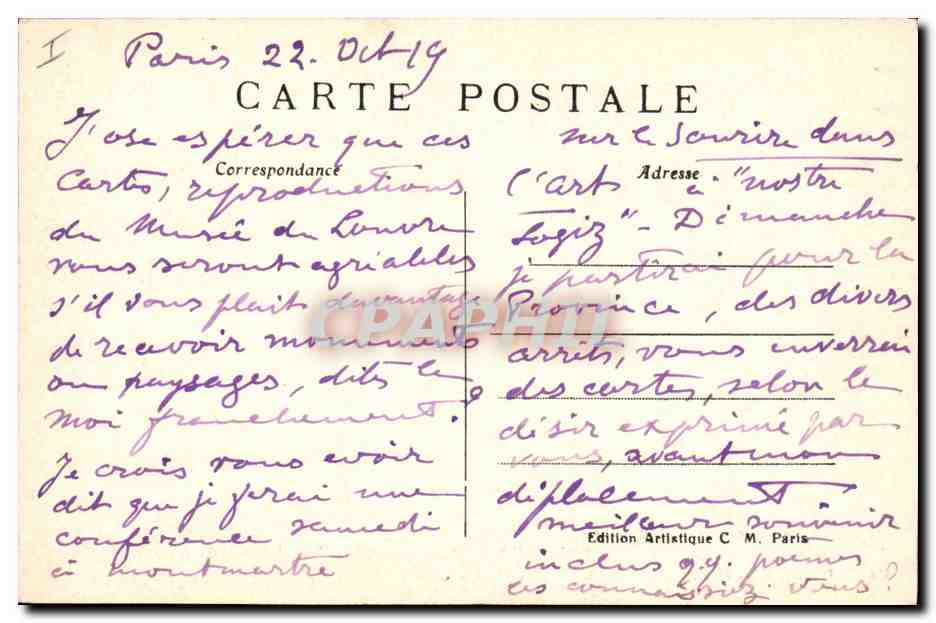 I
Paris 22. Oct 19
CARTE POSTALE
J'ose espérer que ces
Correspondance
Cartes, reproductions
du Musée du Louvre
vous seront agréables
s'il vous plait davantage
de recevoir monuments
ou paysages, dites le
moi franchement.
Je crois vous avoir
dit que je ferai une
conférence samedi
à montmartre
sur le Sourire dans
Adresse
l'art à "nostre
Logiz" - Dimanche
je partirai pour la
Province, des divers
arrêts, vous enverrai
des cartes, selon le
désir exprimé par
vous, avant mon
déplacement.
meilleur souvenir
Edition Artistique C. M. Paris
inclus q.q. poèmes
les connaissiez vous?
CPAPHIL